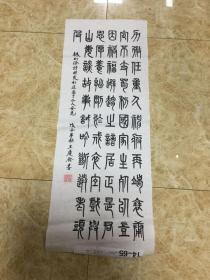 力微任重久神疲再竭衰庸
定不支苟利國家生死以豈
因禍福避趨之謫居正是君
恩厚養拙剛於戍卒宜戲與
山妻談故事試吟斷送老頭
皮
林則徐詩
書
14-65